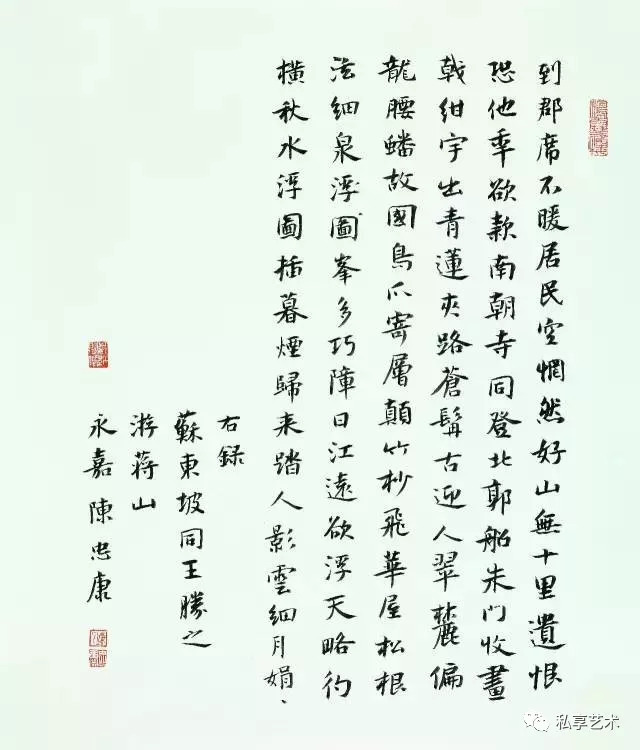 到郡席不暖居民空惘然好山無十里遺恨
恐他秊欲款南朝寺同登北郭船朱門收畫
戟紺宇出青蓮夾路蒼髯古迎人翠麓偏
龍腰蟠故國鳥爪寄層顛竹杪飛華屋松根
泫細泉浮圖峯多巧障日江遠欲浮天略彴
橫秋水浮圖插暮煙歸来踏人影雲細月娟、
右録
蘇東坡同王勝之
游蔣山
永嘉陳忠康
私享艺术